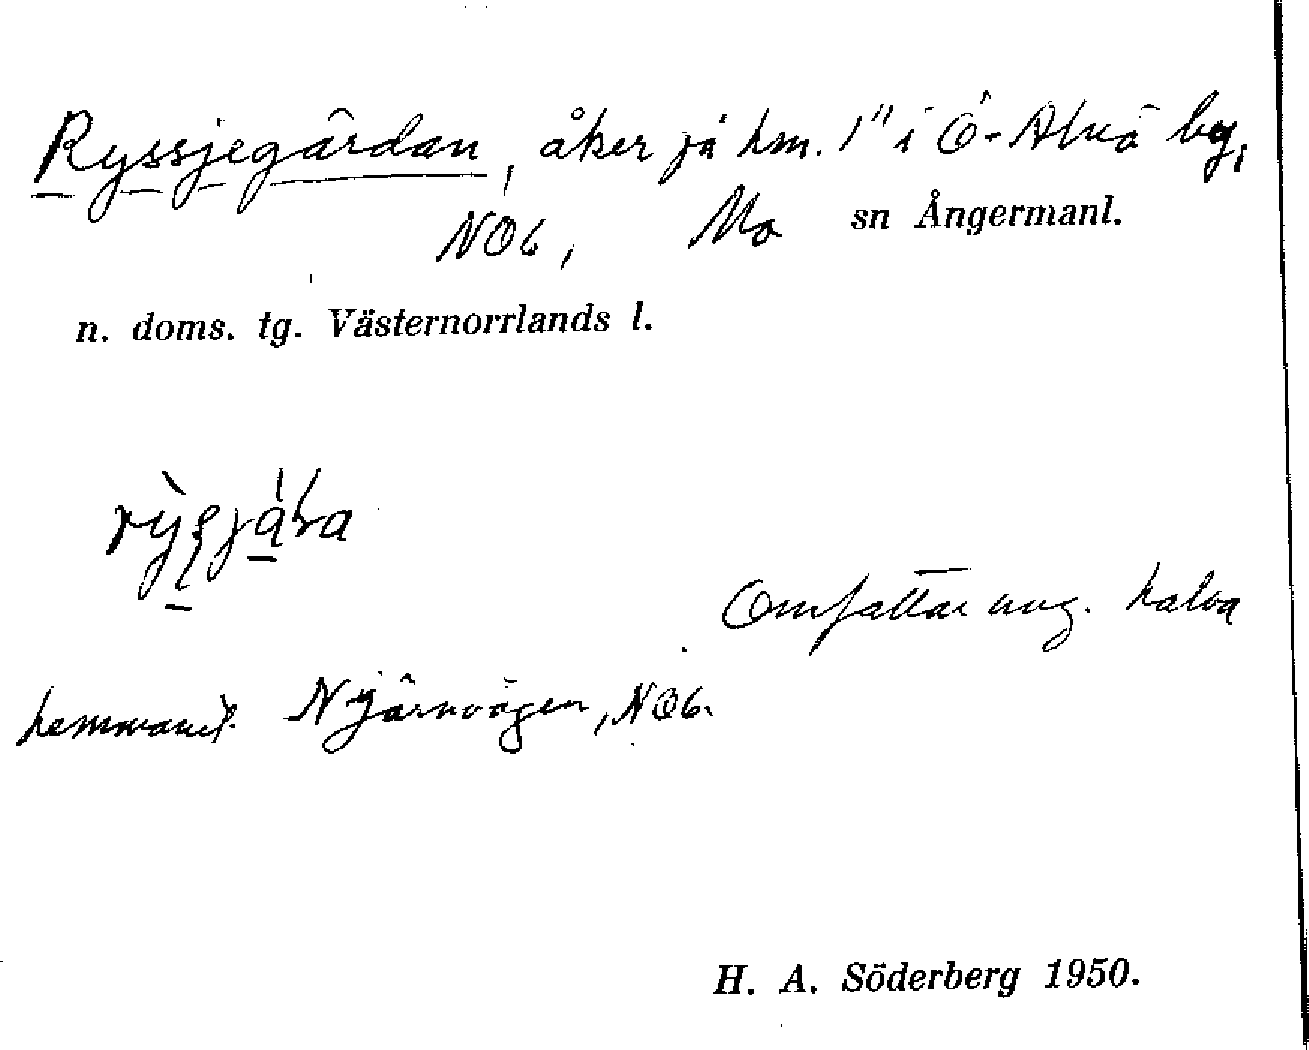 Ryssjegårdan, åker på hm. 1" i Ö-Alnä by,
NO6, Mo sn Ångermanl.
n. doms. tg. Västernorrlands l.
Omfattar ung. halva
hemmanet. N Järnvägen, NO6.
H. A. Söderberg 1950.